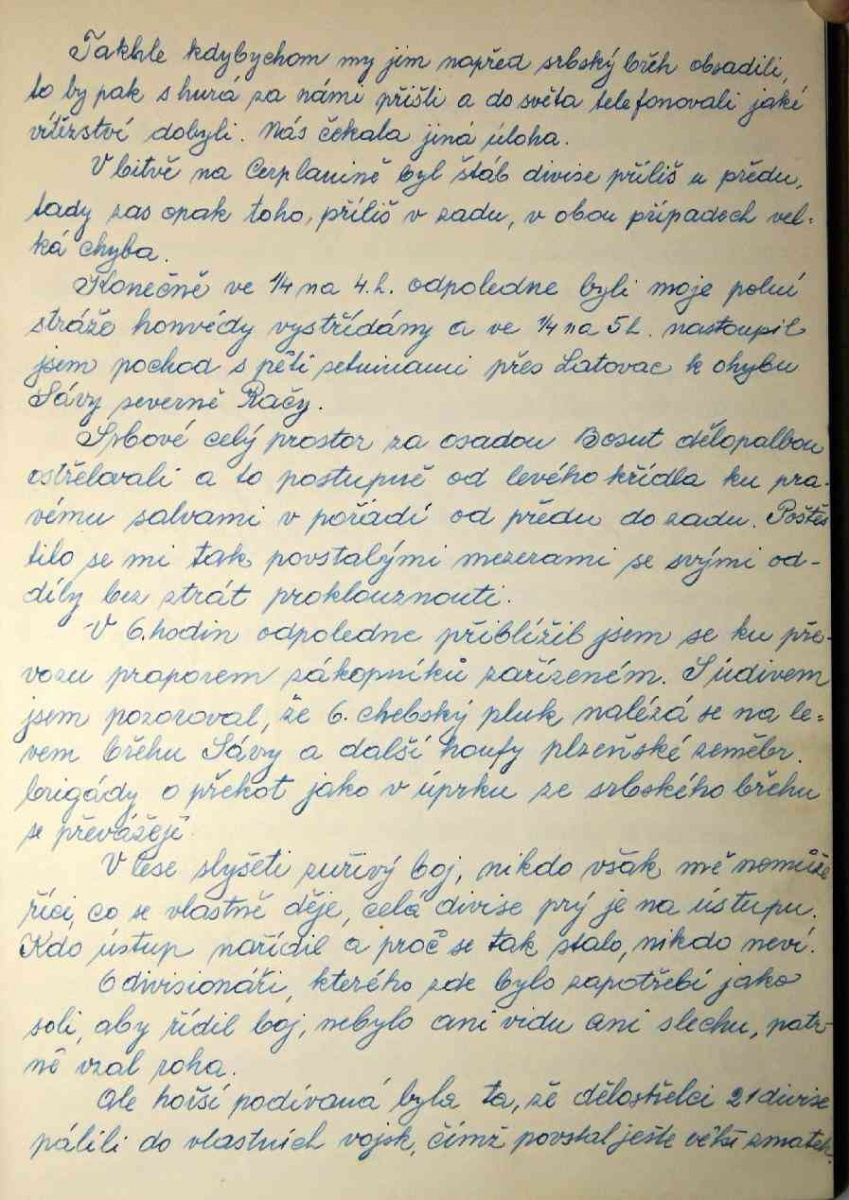 Takhle kdybychom my jim napřed srbský břeh obsadili,
to by pak s hurá za námi přišli a do světa telefonovali jaké
vítězství dobyli. Nás čekala jiná úloha.
V bitvě na Cerplanině byl štáb divise příliš u předu,
tady zas opak toho, příliš v zadu, v obou případech vel-
ká chyba.
Konečně ve 1/4 na 4.h. odpoledne byli moje polní
stráže honvédy vystřídány a ve 1/4 na 5 h. nastoupil
jsem pochod s pěti setninami přes Latovac k ohybu
Sávy severně Rači.
Srbové celý prostor za osadou Bosut dělopalbou
ostřelovali a to postupně od levého křídla ku pra-
vému salvami v pořadí od předu do zadu. Poštěs
tilo se mi tak povstalými mezerami se svými od-
díly bez ztrát proklouznouti.
V 6. hodin odpoledne přiblížil jsem se ku pře-
vozu praporem zákopníků zařízeném. S údivem
jsem pozoroval, že 6. chebský pluk nalézá se na le-
vem břehu Sávy a další houfy plzeňské zeměbr.
brigády o překot jako v úprku ze srbského břehu
se převážejí.
V lese slyšeti zuřivý boj, nikdo však mě nemůže
říci, co se vlastně děje, celá divise prý je na ústupu.
Kdo ústup nařídil a proč se tak stalo, nikdo neví.
O divisionáři, kterého zde bylo zapotřebí jako
soli, aby řídil boj, nebylo ani vidu ani slechu, patr-
ně vzal roha.
Ale horší podívaná byla ta, že dělostřelci 21 divise
pálili do vlastních vojsk, čímž povstal ješte větší zmatek.